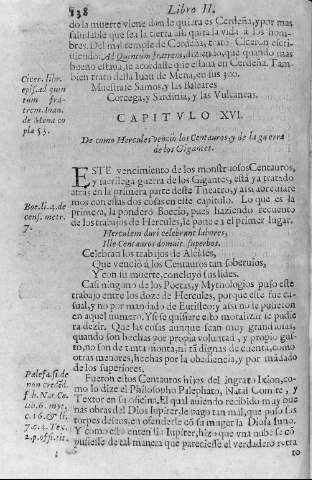 838 Libro II.
do la muerte viene dan le quiera es Cerdeña, y por mas
saludable que sea la tierra alli quita la vida a los hom-
bres. Del mal temple de Cerdeña, trató Ciceron escri-
uiendo, Ad Quintum fratrem, diziendo, que quando mas
bueno estaua, se acordasse que estaua en Cerdeña. Tam
bien trato desta Iuan de Mena, en sus 300.
Cicer. lib.
epist. ad quin
tum fra-
trem. Ioan.
de Mena co
pla 53.
Mucstrate Samos, y las Baleares
Corcega, y Sardinia, y las Vulcaneas.
CAPITVLO XVI.
De como Hercules vencio los Centauros, y de la guerra
de los Gigantes.
ESTE vencimiento de los monstruosos Centauros,
y sacrilega guerra de los Gigantes, está ya tratado
atras en la primera parte deste Theatro, y assi abreuiare
mos con essas dos cosas en este capitulo. Lo que es la
primera, la pondero Boecio, pues haziendo recuento
de los trabajos de Hercules, le pone en el primer lugar.
Boe. li. 4. de
cons. metr.
7.
Herculem duri celebrant labores,
Ille Centauros domuit superbos.
Celebran los trabajos de Alcides,
Que venció á los Centauros tan soberuios,
Y con su muerte, concluyó sus lides.
Casi ninguno de los Poetas, y Mythologios puso este
trabajo entre los doze de Hercules, porque este fue ca-
sual, y no por mandado de Euristeo; y assi no le pusieron
en aquel numero. Y si se quisiere esto moralizar se pudie
ra dezir. Que las cosas aunque sean muy grandiosas,
quando son hechas por propia voluntad, y propio gus-
to, no son de tanta monta, ni tã dignas de cuenta, como
otras menores, hechas por la obediencia, y por mãdado
de los superiores.
Fueron estos Centauros hijos del ingrato Ixion, co-
mo lo dize el Philosopho Palephato, Natal Comite, y
Textor en su oficina. El qual auiendo recibido muy bue
nas obras del Dios Iupiter, le pago tan mal, que puso sus
torpes desseos, en ofenderle có su muger la Diosa Iuno.
Y como esto entendiesse Iupiter, hizo que vna nube se có
pusiesse de tal manera que pareciesse el verdadero retra
Palefa. li. de
non credẽd.
f. b. Nat. Co.
lib. 6. myt.
c. 16. & li.
7. c. 4. Tex.
2. p. offi. tit.
to